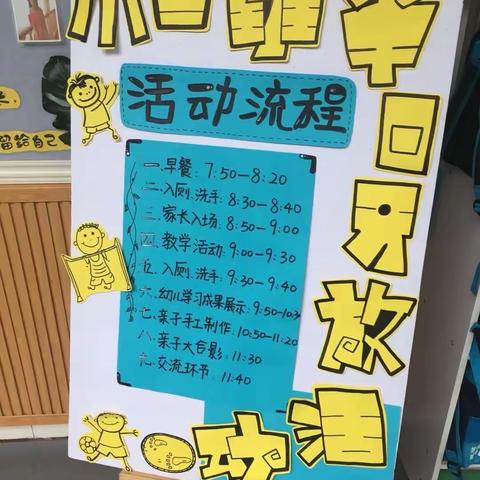 半日开放活动
活动流程
一.早餐: 7:50-8:20
二.入厕.洗手: 8:30-8:40
三.家长入场: 8:50-9:00
四.教学活动: 9:00-9:30
五.入厕.洗手: 9:30-9:40
六.幼儿学习成果展示: 9:50-10:3
七.亲子手工制作: 10:50-11:20
八.亲子大合影: 11:30
九.交流环节: 11:40
留给自己